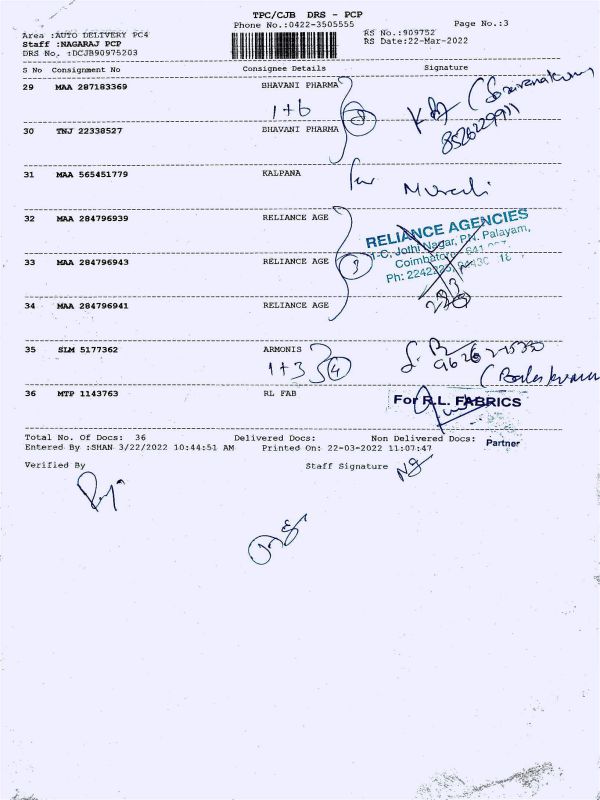 TPC/CJB DRS - PCP
Phone No.:0422-3505555 Page No.:3
Area :AUTO DELIVERY PC4 RS No.:909752
Staff :NAGARAJ PCP RS Date:22-Mar-2022
DRS No. :DCJB90975203
S No Consignment No Consignee Details Signature
29 MAA 287183369 BHAVANI PHARMA
1+6 8
8526229911
30 TNJ 22338527 BHAVANI PHARMA
31 MAA 565451779 KALPANA for Murali
32 MAA 284796939 RELIANCE AGE
RELIANCE AGENCIES
Jothi Nagar, P.N. Palayam,
Coimbatore
33 MAA 284796943 RELIANCE AGE 3
Ph:
34 MAA 284796941 RELIANCE AGE
35 SLM 5177362 ARMONIS
1+3 4
36 MTP 1143763 RL FAB
For R.L. FABRICS
Partner
Total No. Of Docs: 36 Delivered Docs: Non Delivered Docs:
Entered By :SHAN 3/22/2022 10:44:51 AM Printed On: 22-03-2022 11:07:47
Verified By Staff Signature